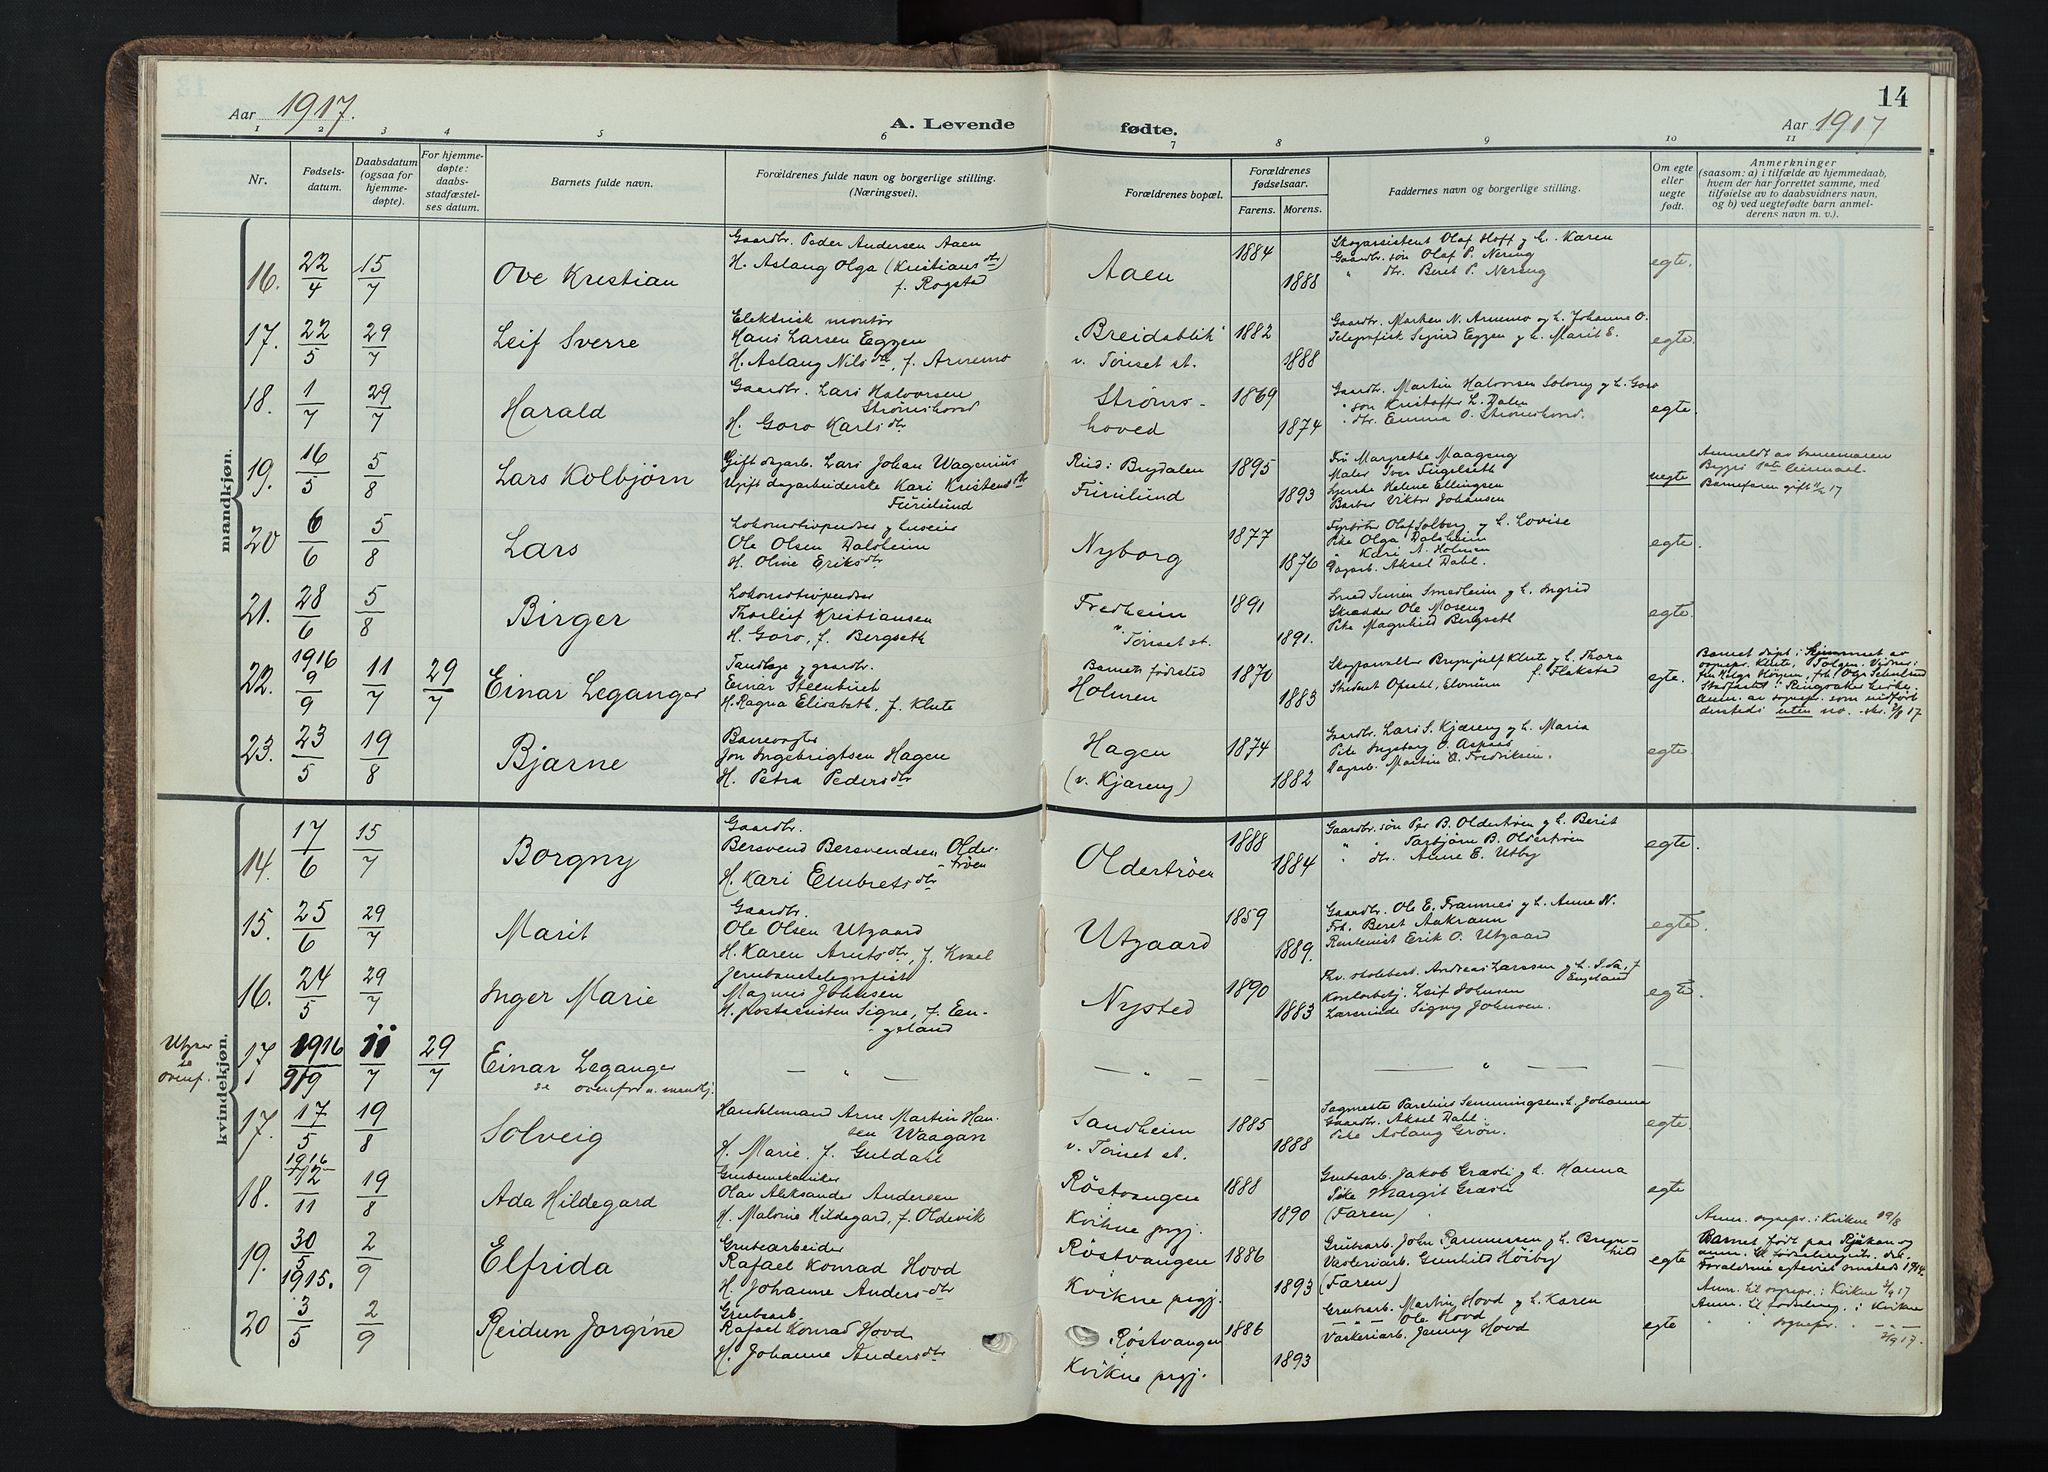 Aar 1917.
A. Levende
fødte.
Aar 1917
14
1 2 3 4 5 6 7 8 9 10 11
Nr.
Fødsels-
datum.
Daabsdatum
(ogsaa for
hjemme-
døpte).
For hjemme-
døpte:
daabs-
stadfæstel-
ses datum.
Barnets fulde navn.
Forældrenes fulde navn og borgerlige stilling.
(Næringsvei).
Forældrenes bopæl.
Forældrenes
fødselsaar.
Farens. Morens.
Faddernes navn og borgerlige stilling.
Om egte
eller
uegte
født.
Anmerkninger
(saasom: a) i tilfælde av hjemmedaab,
hvem der har forrettet samme, med
tilføielse av to daabsvidners navn,
og b) ved uegtefødte barn anmel-
derens navn m. v.).
mandkjøn.
16. 22/4 15/7 Ove Kristian
Gaardbr. Peder Andersen Aaen
H. Aslaug Olga (Kristiansdtr)
f. Rogstad
Aaen 1884 1888
Skogassistent Olaf Hoff g h. Karen
Gaardbr. søn Olaf P. Nereng
" dtr. Beret P. Nereng
egte.
17. 22/5 29/7 Leif Sverre
Elektrisk montør
Hans Larsen Eggen
H. Aslaug Nilsdtr, f. Arnemo
Breidablik
v. Tønset st.
1882 1888
Gaardbr. Morten N. Arnemo og h. Johanne O.
Telegrafist Sigurd Eggen g h. Marit E.
egte.
18. 1/7 29/7 Harald
Gaardbr. Lars Halvorsen
Strømshoved
H. Goro Karlsdtr
Strøms-
hoved
1869 1874
Gaardbr. Martin Halvorsen g h. Goro
" søn Kristoffer L. Dalen
" dtr. Emma O. Strømshoved.
egte.
19. 16/5 5/8 Lars Kolbjørn
Gift dagarb. Lars Johan Wagenius
Ugift dagarbeiderske Kari Kristensdtr
Furulund
Rud i Brydalen
Furulund
1895 1893
Fru Margrethe Maageng
Maler Iver Fugelseth
Helene Ellingsen
Barber Viktor Johansen
uegte
Anmeldt av barnemoren
Barnefaren gift 17
20 6/6 5/8 Lars
Lokomotivpudser g huseier
Ole Olsen Dalsheim
H. Oline Eriksdtr
Nyborg 1877 1876
Fyrbøter Olaf Solberg g h. Lovise
Pike Olga Dalsheim
" Kari A. Holmen
Dagarb. Aksel Dahl.
egte.
21. 28/6 5/8 Birger
Lokomotivpudser
Thorleif Kristiansen
H. Goro, f. Bergseth
Fredheim
v.
Tønset st.
1891 1891.
Smed Simen Smedheim g h. Ingrid
Skrædder Ole Moseng
Pike Magnhild Bergseth
egte.
22. 1916 9/9 11/7 29/7 Einar Leganger
Tandlæge g gaardbr.
Einar Steenbuch
H. Ragna Elisabeth. f. Klüte
Barnets fødested
Holmen
1870 1883
Skogforvalter Brynjulf Klüte g h. Thora
f. Flakstad
Student Opsahl, Elverum
egte.
Barnet døpt i hjemmet av
sognepr. Klüte, Tolgen. Vidner:
Stadfæstet i Ringsaker kirke.
Anm. av sognepr. som indført
dersteds uten no. 17
23. 23/5 19/8 Bjarne
Banevogter
Jon Ingebrigtsen Hagen
H. Petra Pedersdtr
Hagen
(v. Kjæreng)
1874 1882
Gaardbr. Lars S. Kjæreng g h. Maria
Pike Ingeborg O. Aspaas
Dagarb. Martin O. Fredriksen.
egte.
kvindekjøn.
14. 17/6 15/7 Borgny
Gaardbr.
Bersvend Bersvendsen Older-
trøen
H. Kari Embretsdtr
Oldertrøen 1888 1884
Gaardbr. søn Per B. Oldertrøen g h. Berit
" " Torbjørn B. Oldertrøen
" dtr. Anne E. Utby
egte.
15. 25/6 29/7 Marit
Gaardbr.
Ole Olsen Utgaard
H. Karen Arntsdtr, f.
Utgaard 1859 1889.
Gaardbr. Ole E. Framnes g h. Anne N.
Frk. Beret Aakrann
Rentenist Erik O. Utgaard
egte.
16. 24/5 29/7 Inger Marie
Jernbanetelegrafist
Magnus Johnsen
H. postassistent Signe, f. En-
geland
Nysted 1890 1883
Fhv. Andreas Larssen g h. Ida, f.
Engeland
Kontorbetj. Leif Johnsen
Lærerinde Signy Johnsen.
egte.
Utgaar
se
ovenf.
17. 1916 9/9 11/7 29/7 Einar Leganger
se ovenfor u. mandkj.
— " —
— " —
— " —
17. 17/5 19/8 Solveig
Handelsmand Arne Martin Han-
sen Waagan
H. Marie. f. Guldahl
Sandheim
v. Tønset st.
1885 1888
Sagmester Parelius Semmingsen g h. Johanna
Gaardbr. Aksel Dahl.
Pike Aslaug Grøn.
egte
18. 1916 12/11 19/8 Ada Hildegard
Grubemekaniker
Olav Aleksander Andersen
H. Malvine Hildegard, f. Oldevik
Røstvangen
Kvikne prgj.
1888 1890
Grubearb. Jakob Græsli g h. Hanna
Pike Margit Græsli
(Faren)
egte
Anm. sognepr. i Kvikne 19/8
19. 30/5 1915. 2/9 Elfrida
Grubearbeider
Rafael Konrad Hovd
H. Johanne Andersdtr
Røstvangen
Kvikne prgj.
1886 1893
Grubearb. John Rasmussen g h. Bryn-
hild
Vaskeriarb. Gunhild Høiby
(Faren)
egte
Barnet født paa Rjukan og
anm. til fødselsregist. der.
Forældrene egteviet smsteds 1914.
Anm. til sognepr. i Kvikne 2/9 17
20 3/5 2/9 Reidun Jorgine
Grubearb.
Rafael Konrad Hovd
H. Johanne Andersdtr
Røstvangen
Kvikne prgj.
1886 1893
Grubearb. Martin Hovd g h. Karen
— " — Ole Hovd
Vaskeriarb. Jenny Hovd
egte
Anm. til fødselsreg. i Kvikne
" " sognepr. — " —
2/9 17.